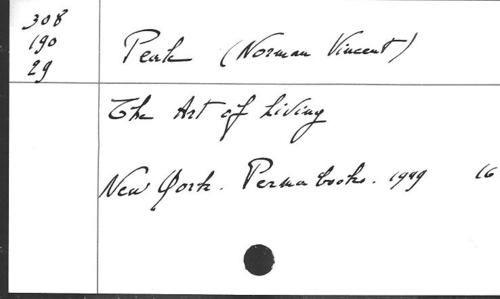 308
190
29
Peale (Norman Vincent)
The Art of Living
New York. Perma books. 1949 16